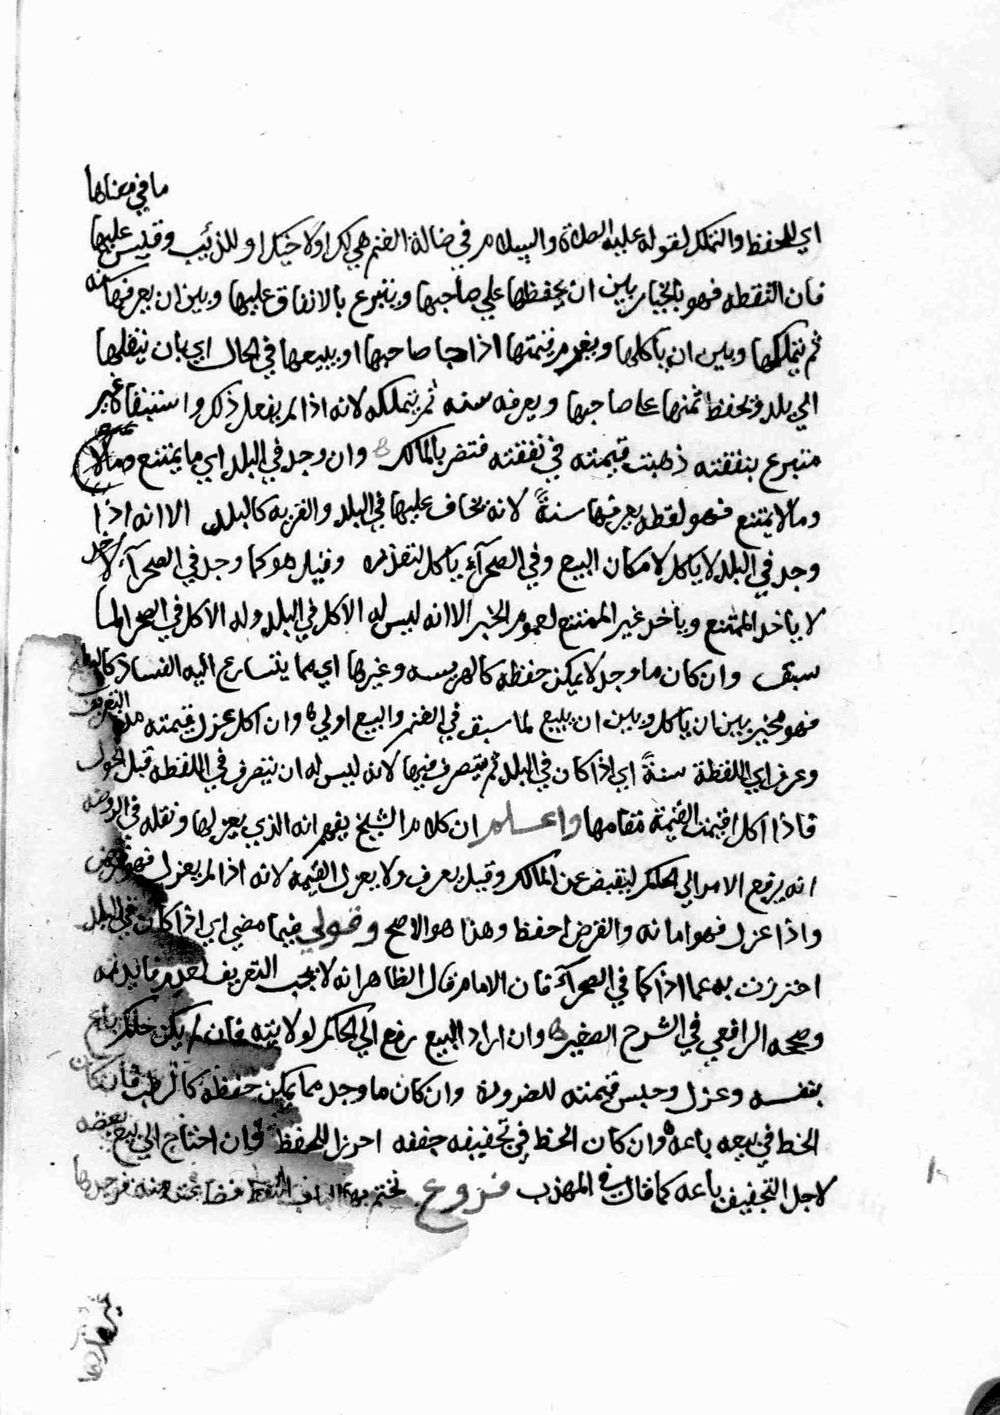 ما في معناها
اي للحفظ والتملك لقوله عليه الصلاة والسلام في ضالة الغنم هي لك او لاخيك او للذئب وقيس عليها
فان التقطه فهو بالخيار بين ان يحفظها علي صاحبها ويتبرع بالانفاق عليها وبين ان يعرفها سنه
ثم يتملكها وبين ان ياكلها ويغرم قيمتها اذا جا صاحبها او يبيعها في الحال اي بان ينقلها
الي بلد ويحفظ ثمنها على صاحبها ويعرفه سنه ثم يتملكه لانه اذا لم يفعل ذلك واستبقاه غير
متبرع بنفقته ذهبت قيمته في نفقته فتضر بالمالك وان وجد في البلد اي ما يمتنع
وما لا يمتنع فهو لقطه يعرفها سنةً لانه يخاف عليها في البلد والقريه كالبلد الا انه اذا
وجد في البلد لا ياكل لامكان البيع وفي الصحرآء ياكل لتعذره وقيل هو كما وجد في الصحرآء
لا ياخذ الممتنع وياخذ غير الممتنع لعموم الخبر الا انه ليس له الاكل في البلد وله الاكل في الصحرا لما
سبق وان كان ما وجد لا يمكن حفظه كالهريسه وغيرها اي مما يتسارع اليه الفساد
فهو مخير بين ان ياكل وبين ان يبيع لما سبق في الغنم والبيع اولي وان اكل عزل قيمته مده التعريف
وعرف اي اللقطة سنةً اي اذا كان في البلد ثم يتصرف فيها لانه ليس له ان يتصرف في اللقطه قبل الحول
فاذا اكل اقيمت القيمة مقامها واعلم ان كلام الشيخ يفهم انه الذي يعزلها ونقله في الروضه
انه يرفع الامر الي الحاكم ليقبض عن المالك وقيل يعرف ولا يعزل القيمه لانه اذا لم يعزل فهو قرض
واذا عزل فهو امانه والقرض احفظ وهذا هو الاصح وقولي فيما مضي اي اذا كان في البلد
احترزت به عما اذا كا في الصحرآء فان الامام قال الظاهر انه لا يجب التعريف لعدم فايدته
وصححه الرافعي في الشرح الصغير وان اراد البيع رفع الي الحاكم لولايته فان لم يكن حاكم باع
بنفسه وعزل وحبس قيمته للضرورة وان كان ما وجد مما يمكن حفظه كالرطب فان كان
الحظ في بيعه باعه وان كان الحظ في تجفيفه جففه احرز اللحفظ وان احتاج الي بيع بعضه
لاجل التجفيف باعه كما قال في المهذب فروع نختم بها الباب